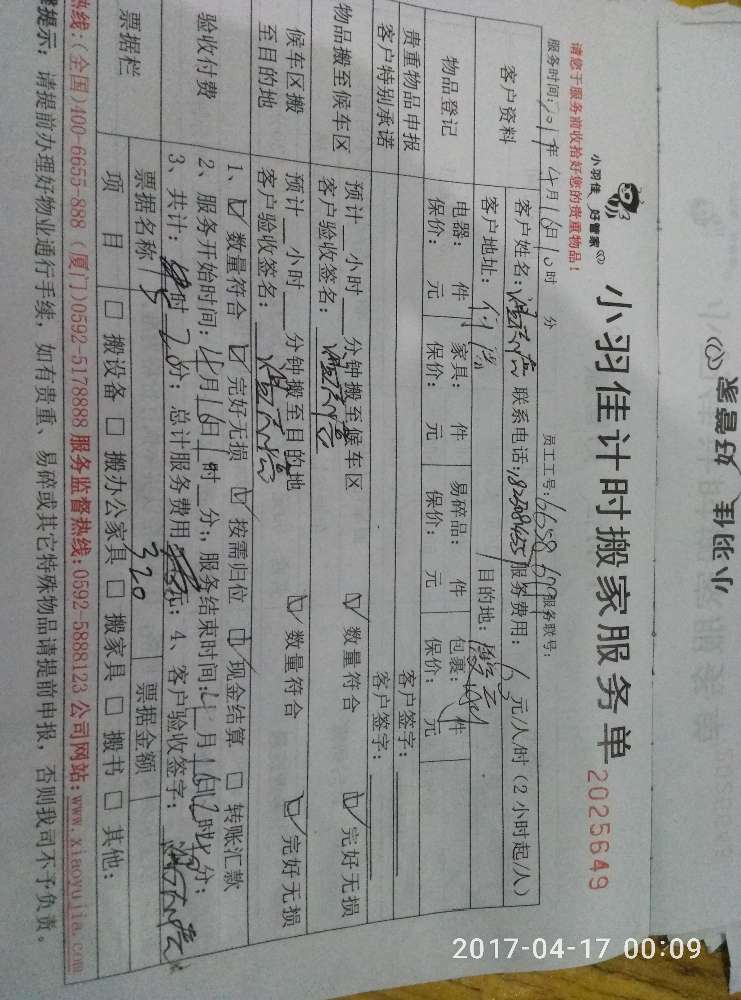 小羽佳 好管家
小羽佳 好管家
小羽佳计时搬家服务单 2025649
请您于服务前收拾好您的贵重物品!
服务时间: 年4月16日10时 分 员工工号: 服务联号:
客户资料 客户姓名: 联系电话: 服务费用: 元/人/时(2小时起/人)
客户地址: 目的地:
物品登记 电器: 件 家具: 件 易碎品: 件 包裹: 件
保价: 元 保价: 元 保价: 元 保价: 元
贵重物品申报 客户签字:
客户特别承诺 客户签字:
物品搬至候车区 预计__小时__分钟搬至候车区 ☑ 数量符合 ☑ 完好无损
客户验收签名:
候车区搬至目的地 预计__小时__分钟搬至目的地 ☑ 数量符合 ☑ 完好无损
客户验收签名:
验收付费 1、☑ 数量符合 ☑ 完好无损 ☑ 按需归位 ☑ 现金结算 □ 转账汇款
2、服务开始时间:4月16日 时__分;服务结束时间:4月16日12时 分;
3、共计: 时20分;总计服务费用 元;4、客户验收签字:
320
票据栏 票据名称 票据金额
项 目 □ 搬设备 □ 搬办公家具 □ 搬家具 □ 搬书 □ 其他:
热线:(全国)400-6655-888 (厦门)0592-5178888 服务监督热线:0592-5888123 公司网站:www.xiaoyujia.com
提示:请提前办理好物业通行手续,如有贵重、易碎或其它特殊物品请提前申报,否则我司不予负责。
2017-04-17 00:09